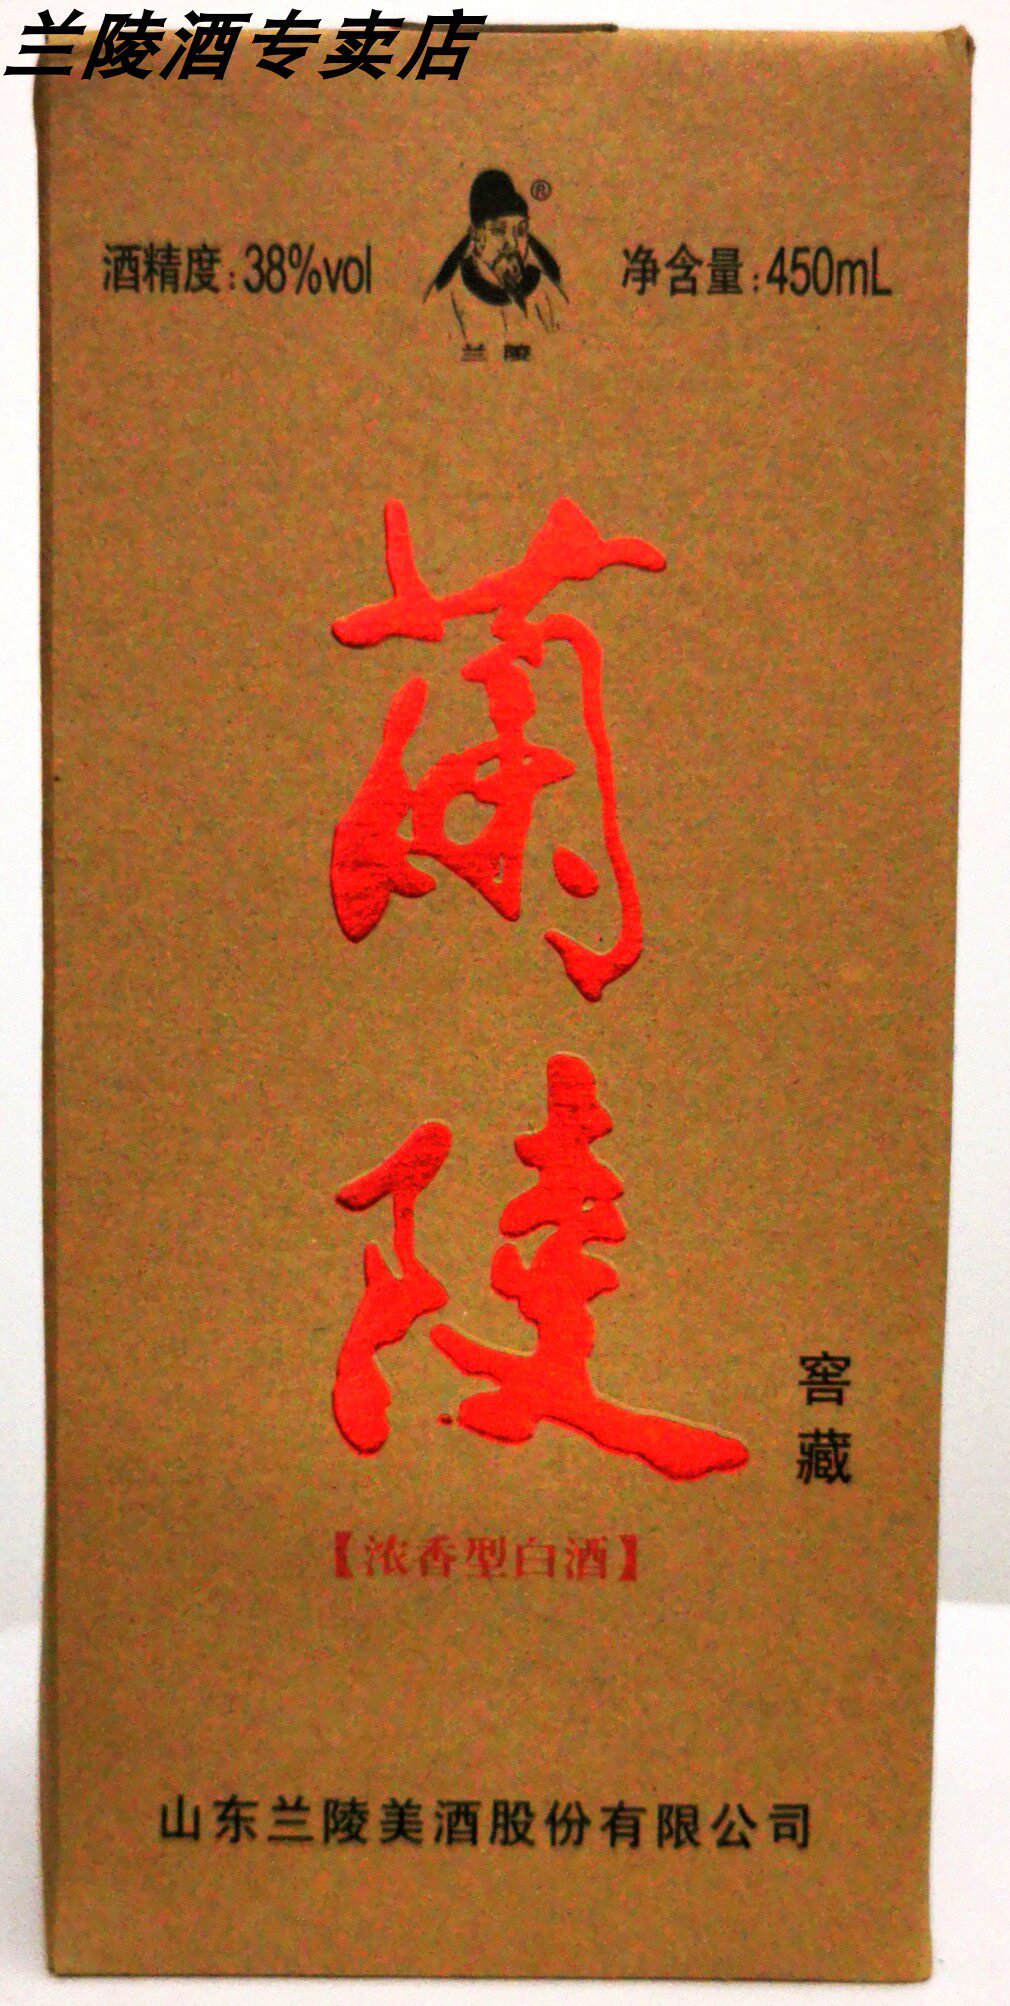 兰陵酒专卖店
酒精度:38%vol
®
净含量:450mL
兰陵
蘭陵
窖藏
【浓香型白酒】
山东兰陵美酒股份有限公司